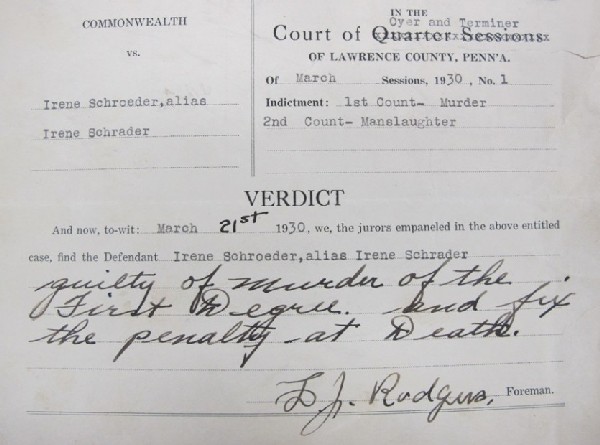 COMMONWEALTH
vs.
Irene Schroeder,alias
Irene Schrader
IN THE
Oyer and Terminer
Court of Quarter Sessions
OF LAWRENCE COUNTY, PENN'A.
Of March Sessions, 1930, No. 1
Indictment: 1st Count- Murder
2nd Count- Manslaughter
VERDICT
And now, to-wit: March 21st 1930, we, the jurors empaneled in the above entitled
case, find the Defendant Irene Schroeder,alias Irene Schrader
guilty of murder of the
First Degree. and fix
the penalty at Death.
L J. Rodgers, Foreman.